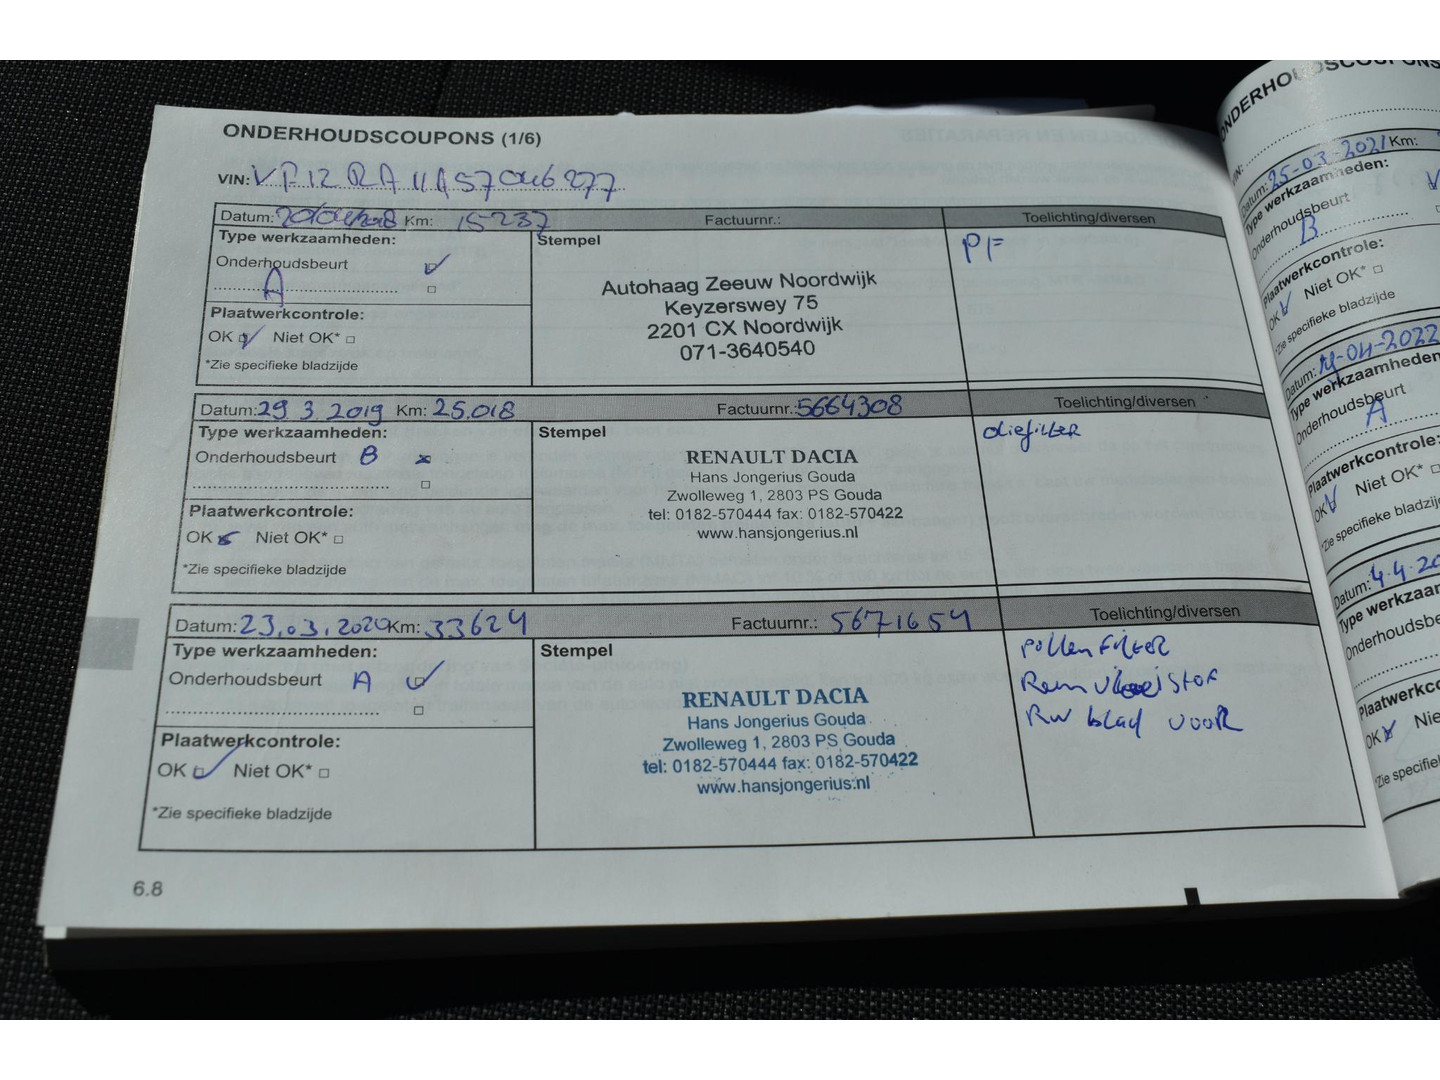 ONDERHOUDSCOUPONS (1/6)
VIN: VF12RA11A57046277
Datum: Km: 15237 Factuurnr.: Toelichting/diversen
Type werkzaamheden: Stempel PF
Onderhoudsbeurt
A
Plaatwerkcontrole:
OK Niet OK*
*Zie specifieke bladzijde
Autohaag Zeeuw Noordwijk
Keyzerswey 75
2201 CX Noordwijk
071-3640540
Datum: 29.3.2019 Km: 25.018 Factuurnr.: 5664308 Toelichting/diversen
Type werkzaamheden: Stempel oliefilter
Onderhoudsbeurt B
Plaatwerkcontrole:
OK Niet OK*
*Zie specifieke bladzijde
RENAULT DACIA
Hans Jongerius Gouda
Zwolleweg 1, 2803 PS Gouda
tel: 0182-570444 fax: 0182-570422
www.hansjongerius.nl
Datum: 23.03.2020 Km: 33624 Factuurnr.: 5671654 Toelichting/diversen
Type werkzaamheden: Stempel
Onderhoudsbeurt A
Plaatwerkcontrole:
OK Niet OK*
*Zie specifieke bladzijde
RENAULT DACIA
Hans Jongerius Gouda
Zwolleweg 1, 2803 PS Gouda
tel: 0182-570444 fax: 0182-570422
www.hansjongerius.nl
pollenfilter
Remvloeistof
RW blad voor
6.8
ONDERHOUDSCOUPONS
VIN:
Datum: 25-03-2021 Km:
Type werkzaamheden:
Onderhoudsbeurt
B
Plaatwerkcontrole:
OK Niet OK*
*Zie specifieke bladzijde
Datum: 11-04-2022
Type werkzaamheden
Onderhoudsbeurt
A
Plaatwerkcontrole:
OK Niet OK*
*Zie specifieke bladzij
Datum: 4.4.20
Type werkzaam
Onderhoudsbe
Plaatwerkco
OK Nie
*Zie specifiel